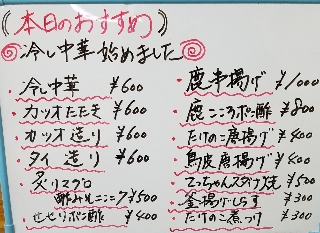 本日のおすすめ
冷し中華始めました
冷し中華 ¥600
カツオたたき ¥600
カツオ造り ¥600
タイ造り ¥600
炙りマグロ
酢みそニンニク ¥500
せせりポン酢 ¥400
鹿串揚げ ¥1000
鹿こころポン酢 ¥800
たけのこ唐揚げ ¥400
鳥皮唐揚げ ¥400
てっちゃんスタミナ焼 ¥500
釜揚げしらす ¥300
たけのこ煮つけ ¥300